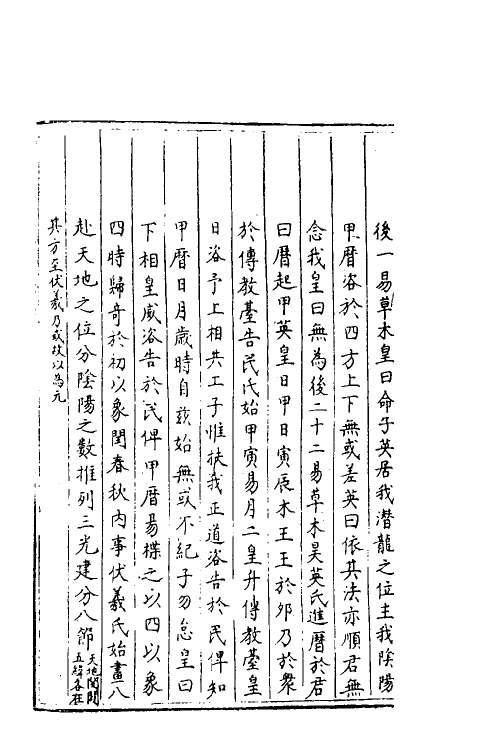 後一易草木皇曰命子英居我潛龍之位主我陰陽
甲曆咨於四方上下無或差英曰依其法亦順君無
念我皇曰無為後二十二易草木昊英氏進曆於君
曰曆起甲英皇曰甲日寅辰木王王於夘乃於衆
於傳教臺告民氏始甲寅易月二皇升傳教臺皇
曰咨予上相共工子惟徒我正道咨告於民俾知
甲曆日月歲時自茲始無或不紀子勿怠皇曰
下相皇咸咨告於民俾甲曆易揲之以四以象
四時歸奇於初以象閏春秋内事伏羲氏始畫八
赴天地之位分陰陽之數推列三光建分八節天地開闢
五緯各在
其方至伏羲乃或故以為元